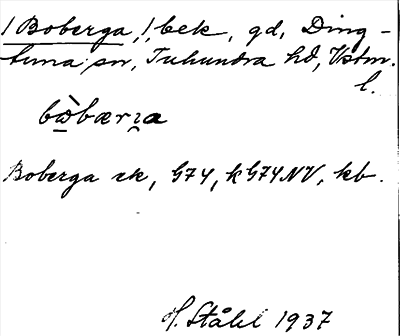 /Boberga,/, bek, gd, Ding-
tuna sn, Tuhundra hd, Vstm.
l.
bɷ̀bærɿa
Boberga ek, G74, k G74NV, kb.
H. Ståhl 1937